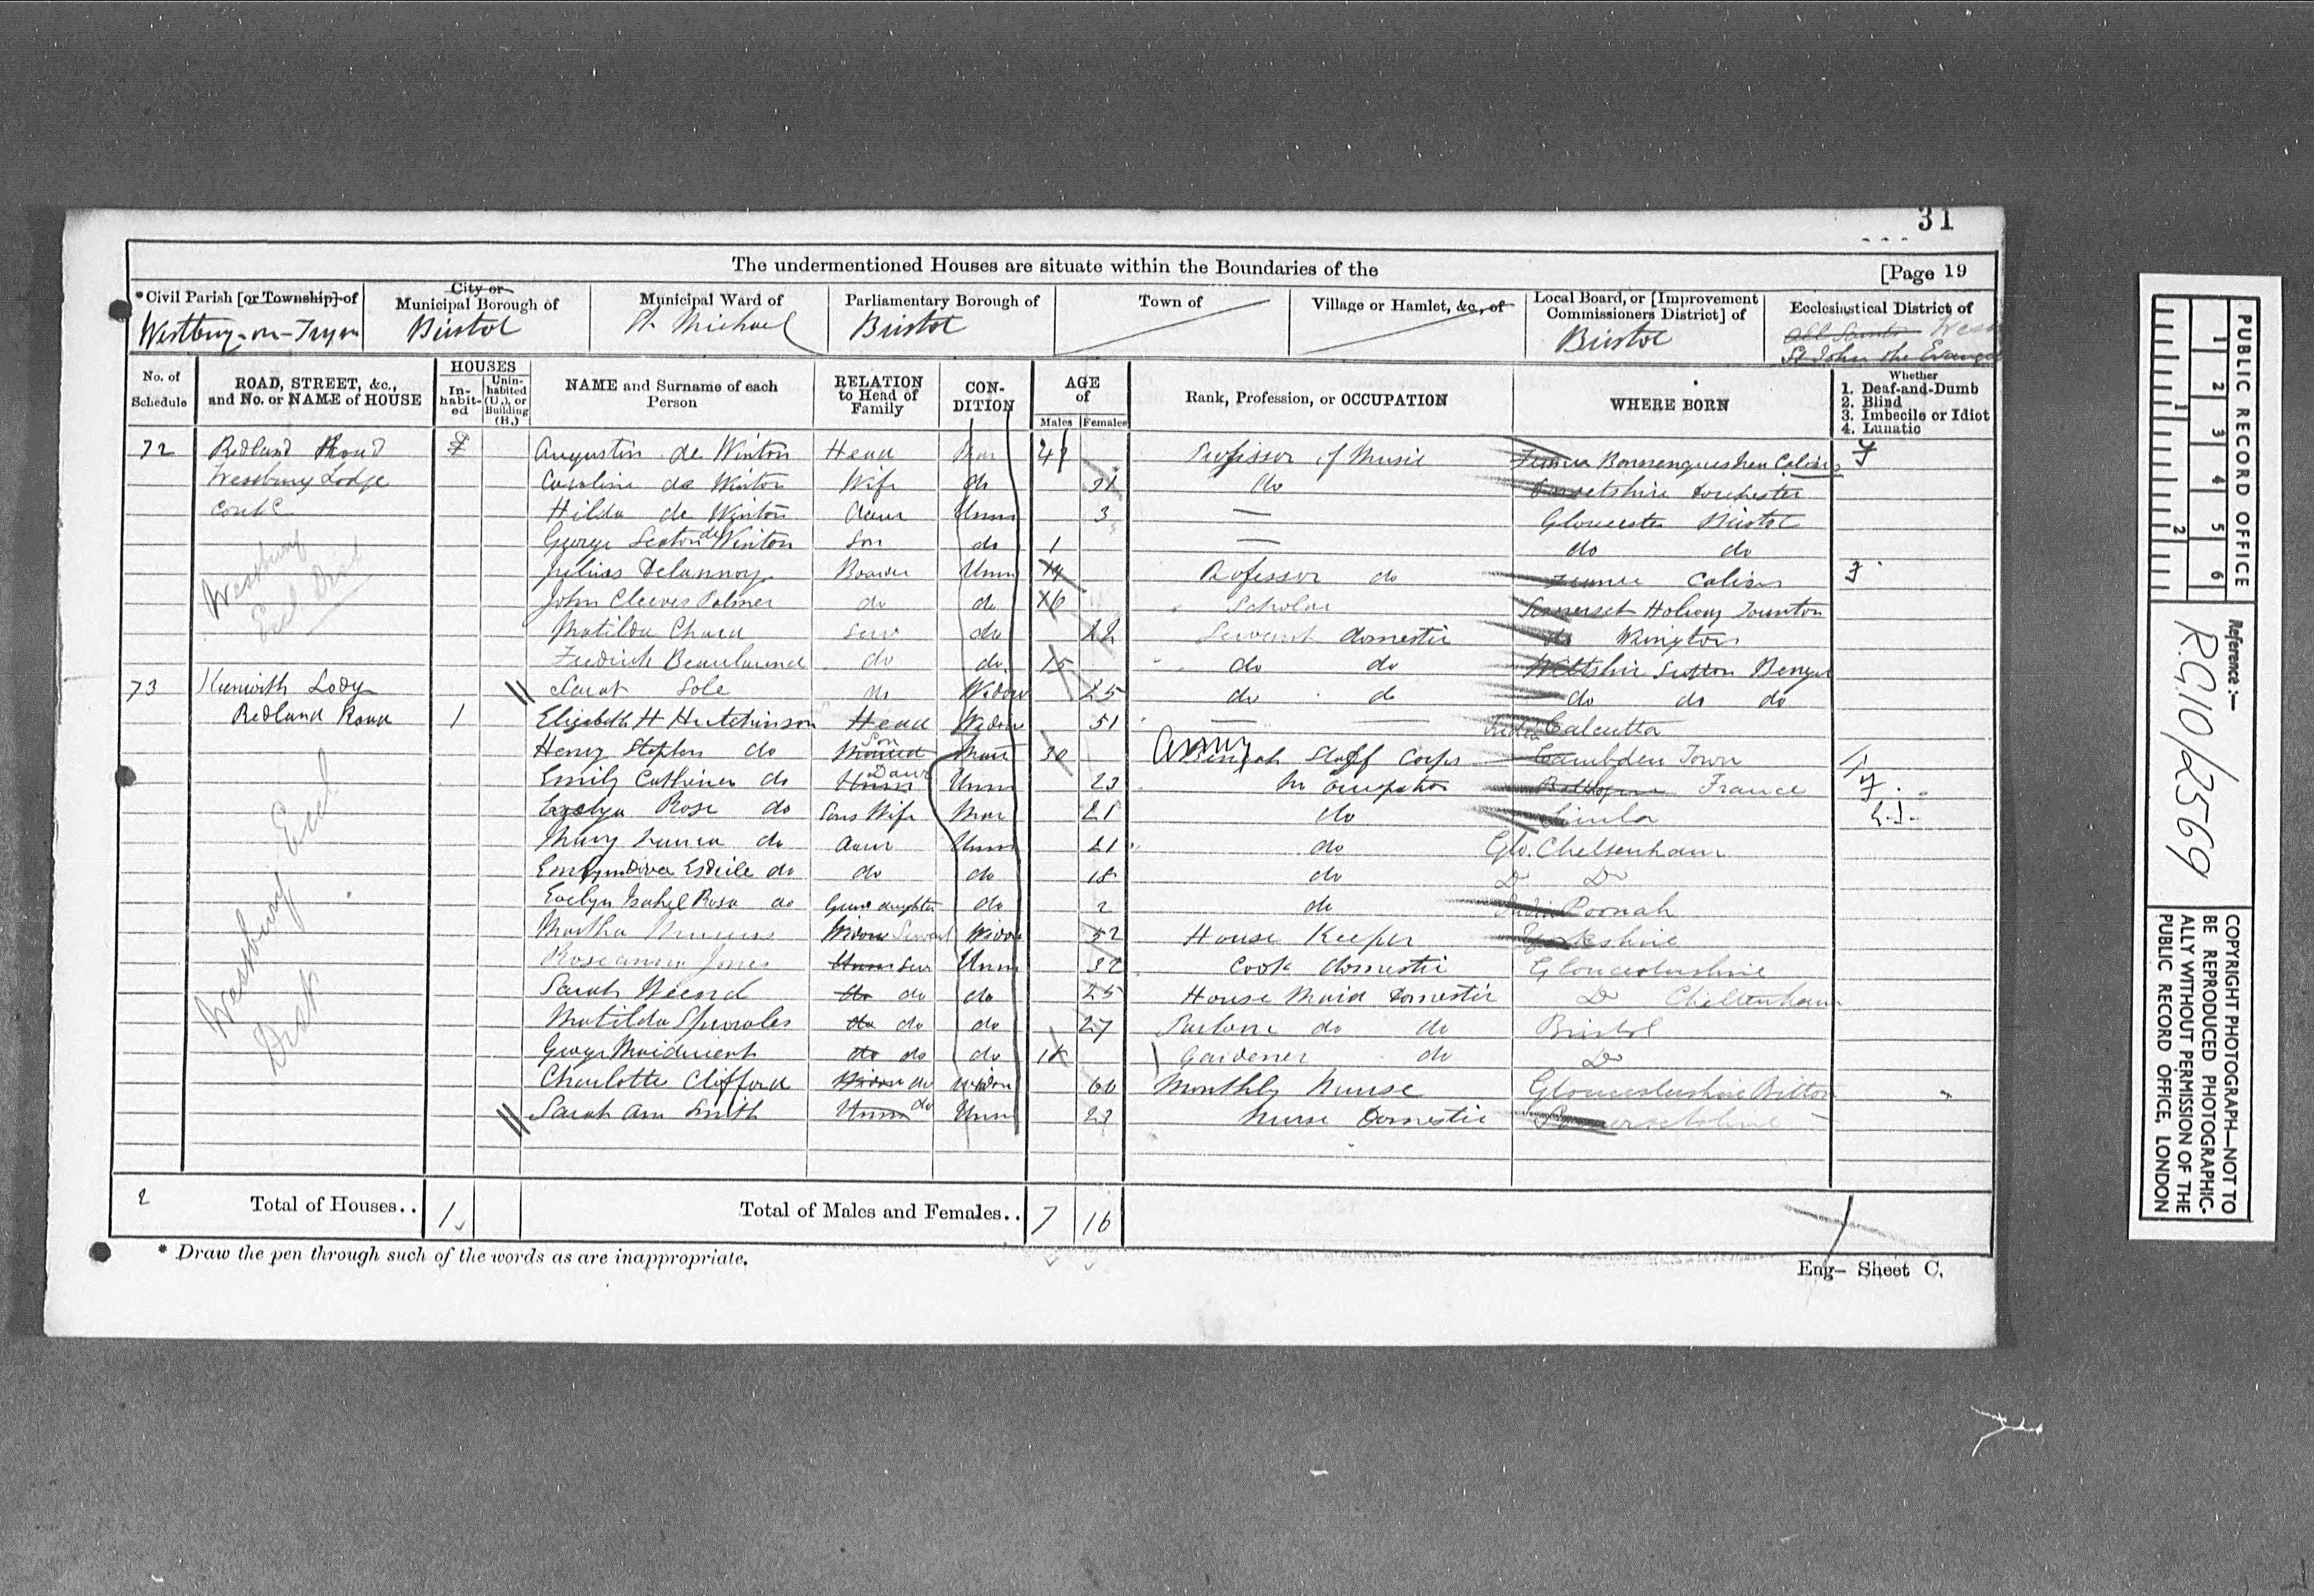 31
The undermentioned Houses are situate within the Boundaries of the
[Page 19
*Civil Parish [or Township] of
Westbury-on-Trym
City or Municipal Borough of
Bristol
Municipal Ward of
St. Michael
Parliamentary Borough of
Bristol
Town of
Village or Hamlet, &c., of
Local Board, or [Improvement Commissioners District] of
Bristol
Ecclesiastical District of
All Saints
St John the
No. of Schedule
ROAD, STREET, &c., and No. or NAME of HOUSE
HOUSES
In-habit-ed
Unin-habited (U.), or Building (B.)
NAME and Surname of each Person
RELATION to Head of Family
CON-DITION
AGE of
Males Females
Rank, Profession, or OCCUPATION
WHERE BORN
Whether
1. Deaf-and-Dumb
2. Blind
3. Imbecile or Idiot
4. Lunatic
72 Redland Road Augustin de Winton Head Mar Professor of Music Calais
Westbury Lodge Caroline de Winton Wife do 31 do Dorsetshire Dorchester
Contd Hilda de Winton Daur Unm 3 — Gloucester Bristol
George Seaton de Winton Son do 1 — do do
Julius Delannoy Boarder Unm 19 Professor do France Calais
John Cleeves Palmer do do 16 Scholar Somerset Taunton
Matilda Serv do 22 Servant domestic do
Frederick do do 15 do do Wiltshire Sutton Benger
73 Kenwith Lodge Sarah Sole do Widow 25 do do do do do
Redland Road 1 Elizabeth H Hutchinson Head Widow 51 — India Calcutta
Henry Stephen do Son Mar 30 Army Bengal Staff Corps Cambden Town
Emily Catherine do Daur Unm 23 No occupation Boulogne France
Evelyn Rose do Sons Wife Mar 21 do Simla
Mary Laura do Daur Unm 21 do Glo. Cheltenham
do do do 18 do Do Do
Evelyn Isabel Rose do Grand daughter do 2 do India Poonah
Martha Widow Servant Widow 52 House Keeper Yorkshire
Roseanna Jones Unm Ser Unm 32 Cook domestic Gloucestershire
Sarah do do do 25 House Maid Domestic Do Cheltenham
Matilda do do do 27 Parlour do do Bristol
George Maidment do do do 18 Gardener do Do
Charlotte Clifford Widow do Widow 60 Monthly Nurse Gloucestershire Bitton
Sarah Ann Smith Unm do Unm 23 Nurse Domestic Somersetshire
Westbury Eccl Dist
Westbury Eccl Dist
2 Total of Houses.. 1 Total of Males and Females.. 7 16
* Draw the pen through such of the words as are inappropriate.
Eng— Sheet C.
PUBLIC RECORD OFFICE
1 2 3 4 5 6
1 2
Reference:—
R.G.10/2569
COPYRIGHT PHOTOGRAPH—NOT TO BE REPRODUCED PHOTOGRAPHIC-ALLY WITHOUT PERMISSION OF THE PUBLIC RECORD OFFICE, LONDON